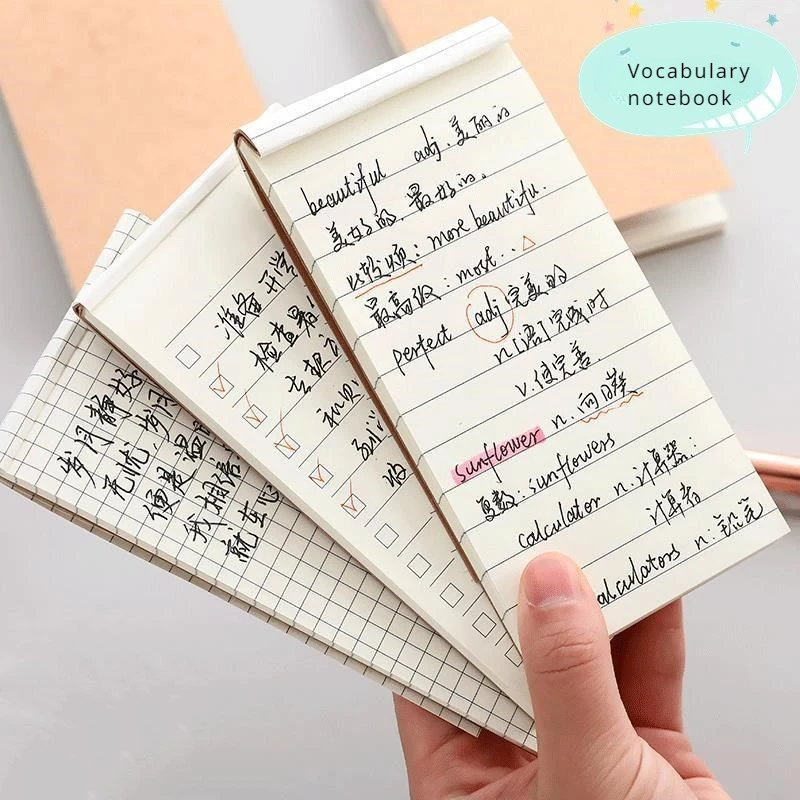 Vocabulary
notebook
beautiful adj. 美丽的
美好的. 最好的.
比较级: more beautiful.
最高级: most..△
perfect adj 完美的
n [语] 完成时
v. 使完善.
sunflower n. 向日葵
复数: sunflowers
calculator n. 计算器;
计算者
calculators n:
准备开学
检查暑
岁月静好
无忧 岁月
便是温
我相信
就在心